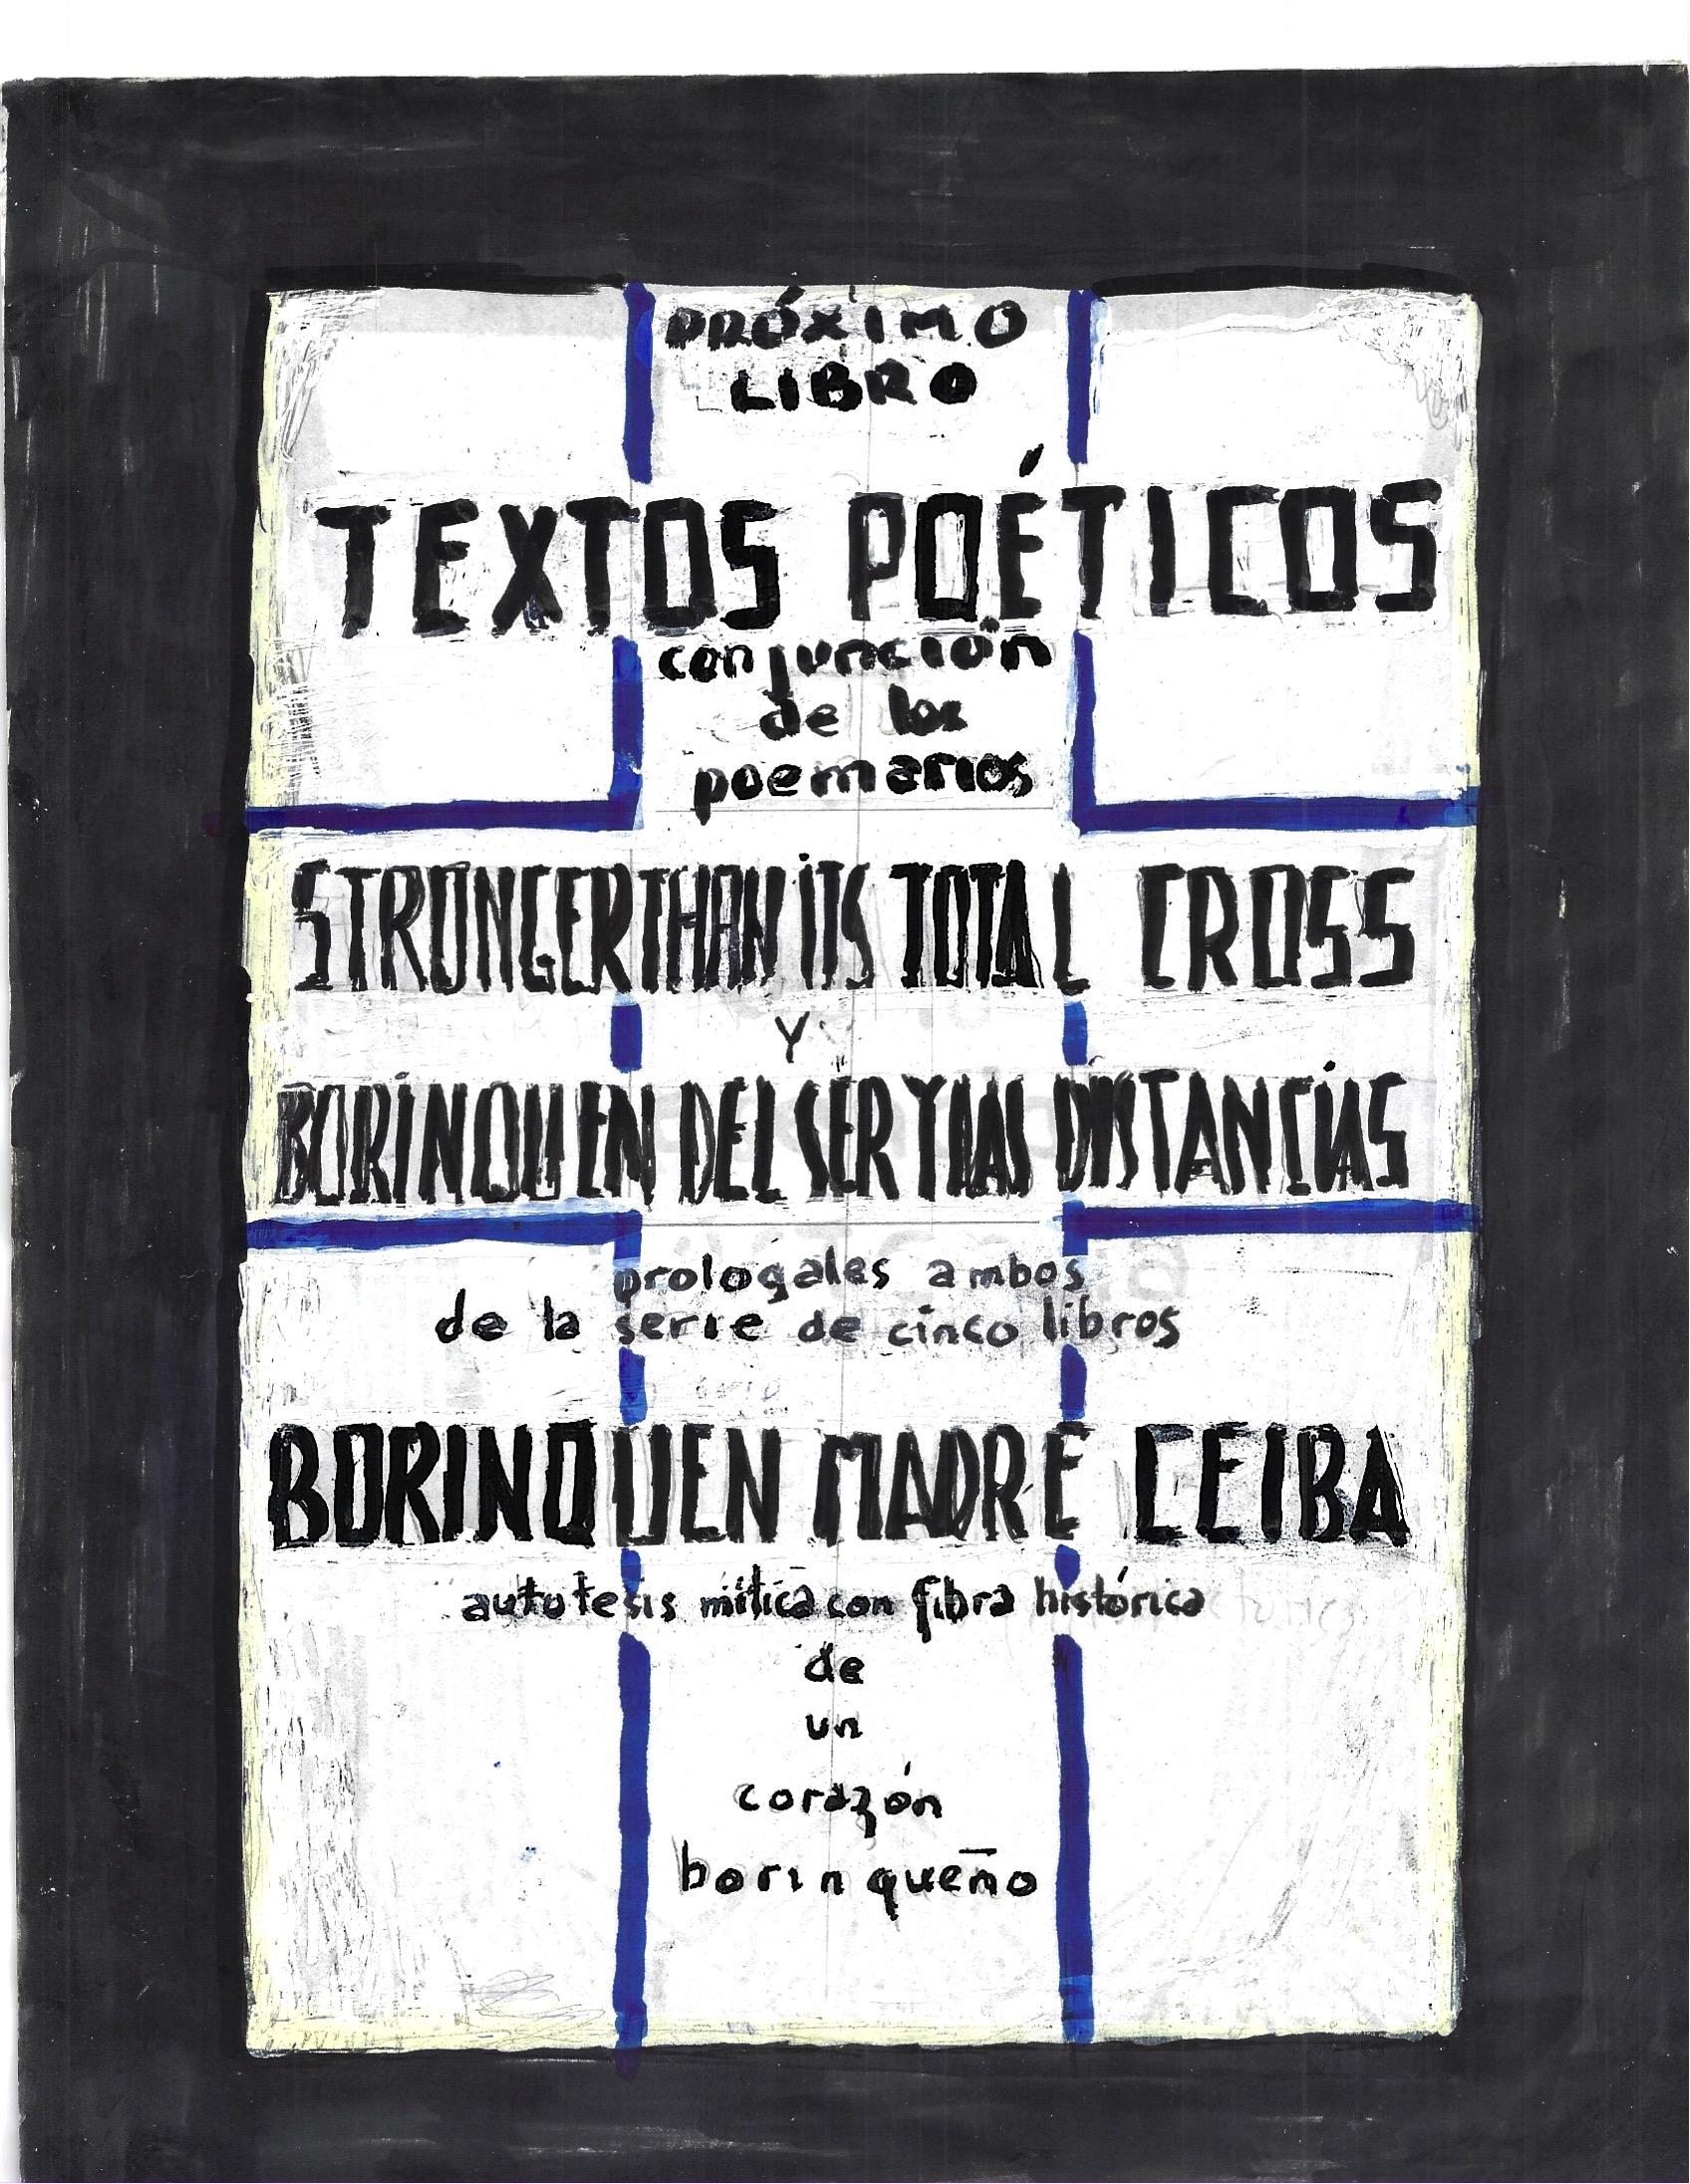 PRÓXIMO
LIBRO
TEXTOS POÉTICOS
conjunción
de los
poemarios
STRONGER THAN ITS TOTAL CROSS
Y
BORINQUEN DEL SER Y LAS DISTANCIAS
prologales ambos
de la serie de cinco libros
BORINQUEN MADRE CEIBA
autotesis mítica con fibra histórica
de
un
corazón
borinqueño